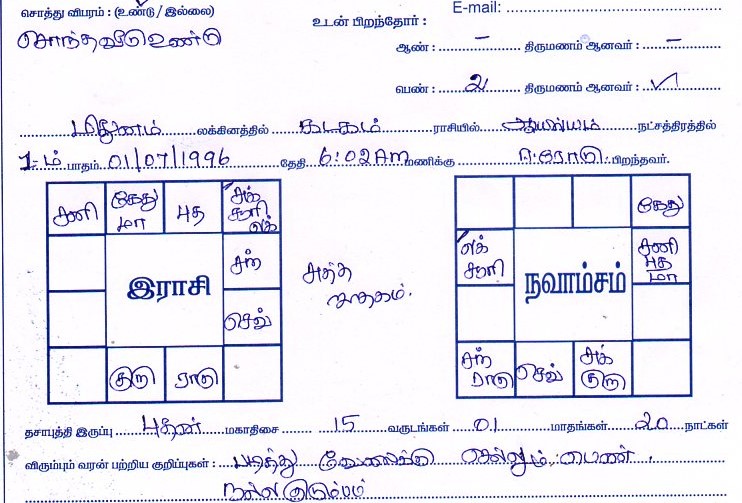 சொத்து விபரம் : (உண்டு / இல்லை)
E-mail:
சொந்தவீடு உண்டு
உடன் பிறந்தோர் :
ஆண் : – திருமணம் ஆனவர் : –
பெண் : 2 திருமணம் ஆனவர் :
மிதுனம் லக்கினத்தில் கடகம் ராசியில் ஆயில்யம் நட்சத்திரத்தில்
1-ம் பாதம் 01/07/1996 தேதி 6:02AM மணிக்கு ஈரோடு பிறந்தவர்.
சனி கேது மா புத சுக் சூரி லக்
கேது
சந்
லக் சூரி
சனி புத மா
இராசி
சுத்த ஜாதகம்.
நவாம்சம்
செவ்
குரு ராகு
சந் ராகு செவ் சுக் குரு
தசாபுத்தி இருப்பு புதன் மகாதிசை 15 வருடங்கள் 01 மாதங்கள் 20 நாட்கள்
விரும்பும் வரன் பற்றிய குறிப்புகள் : படித்து வேலைக்கு செல்லும் பெண்.
நல்ல குடும்பம்